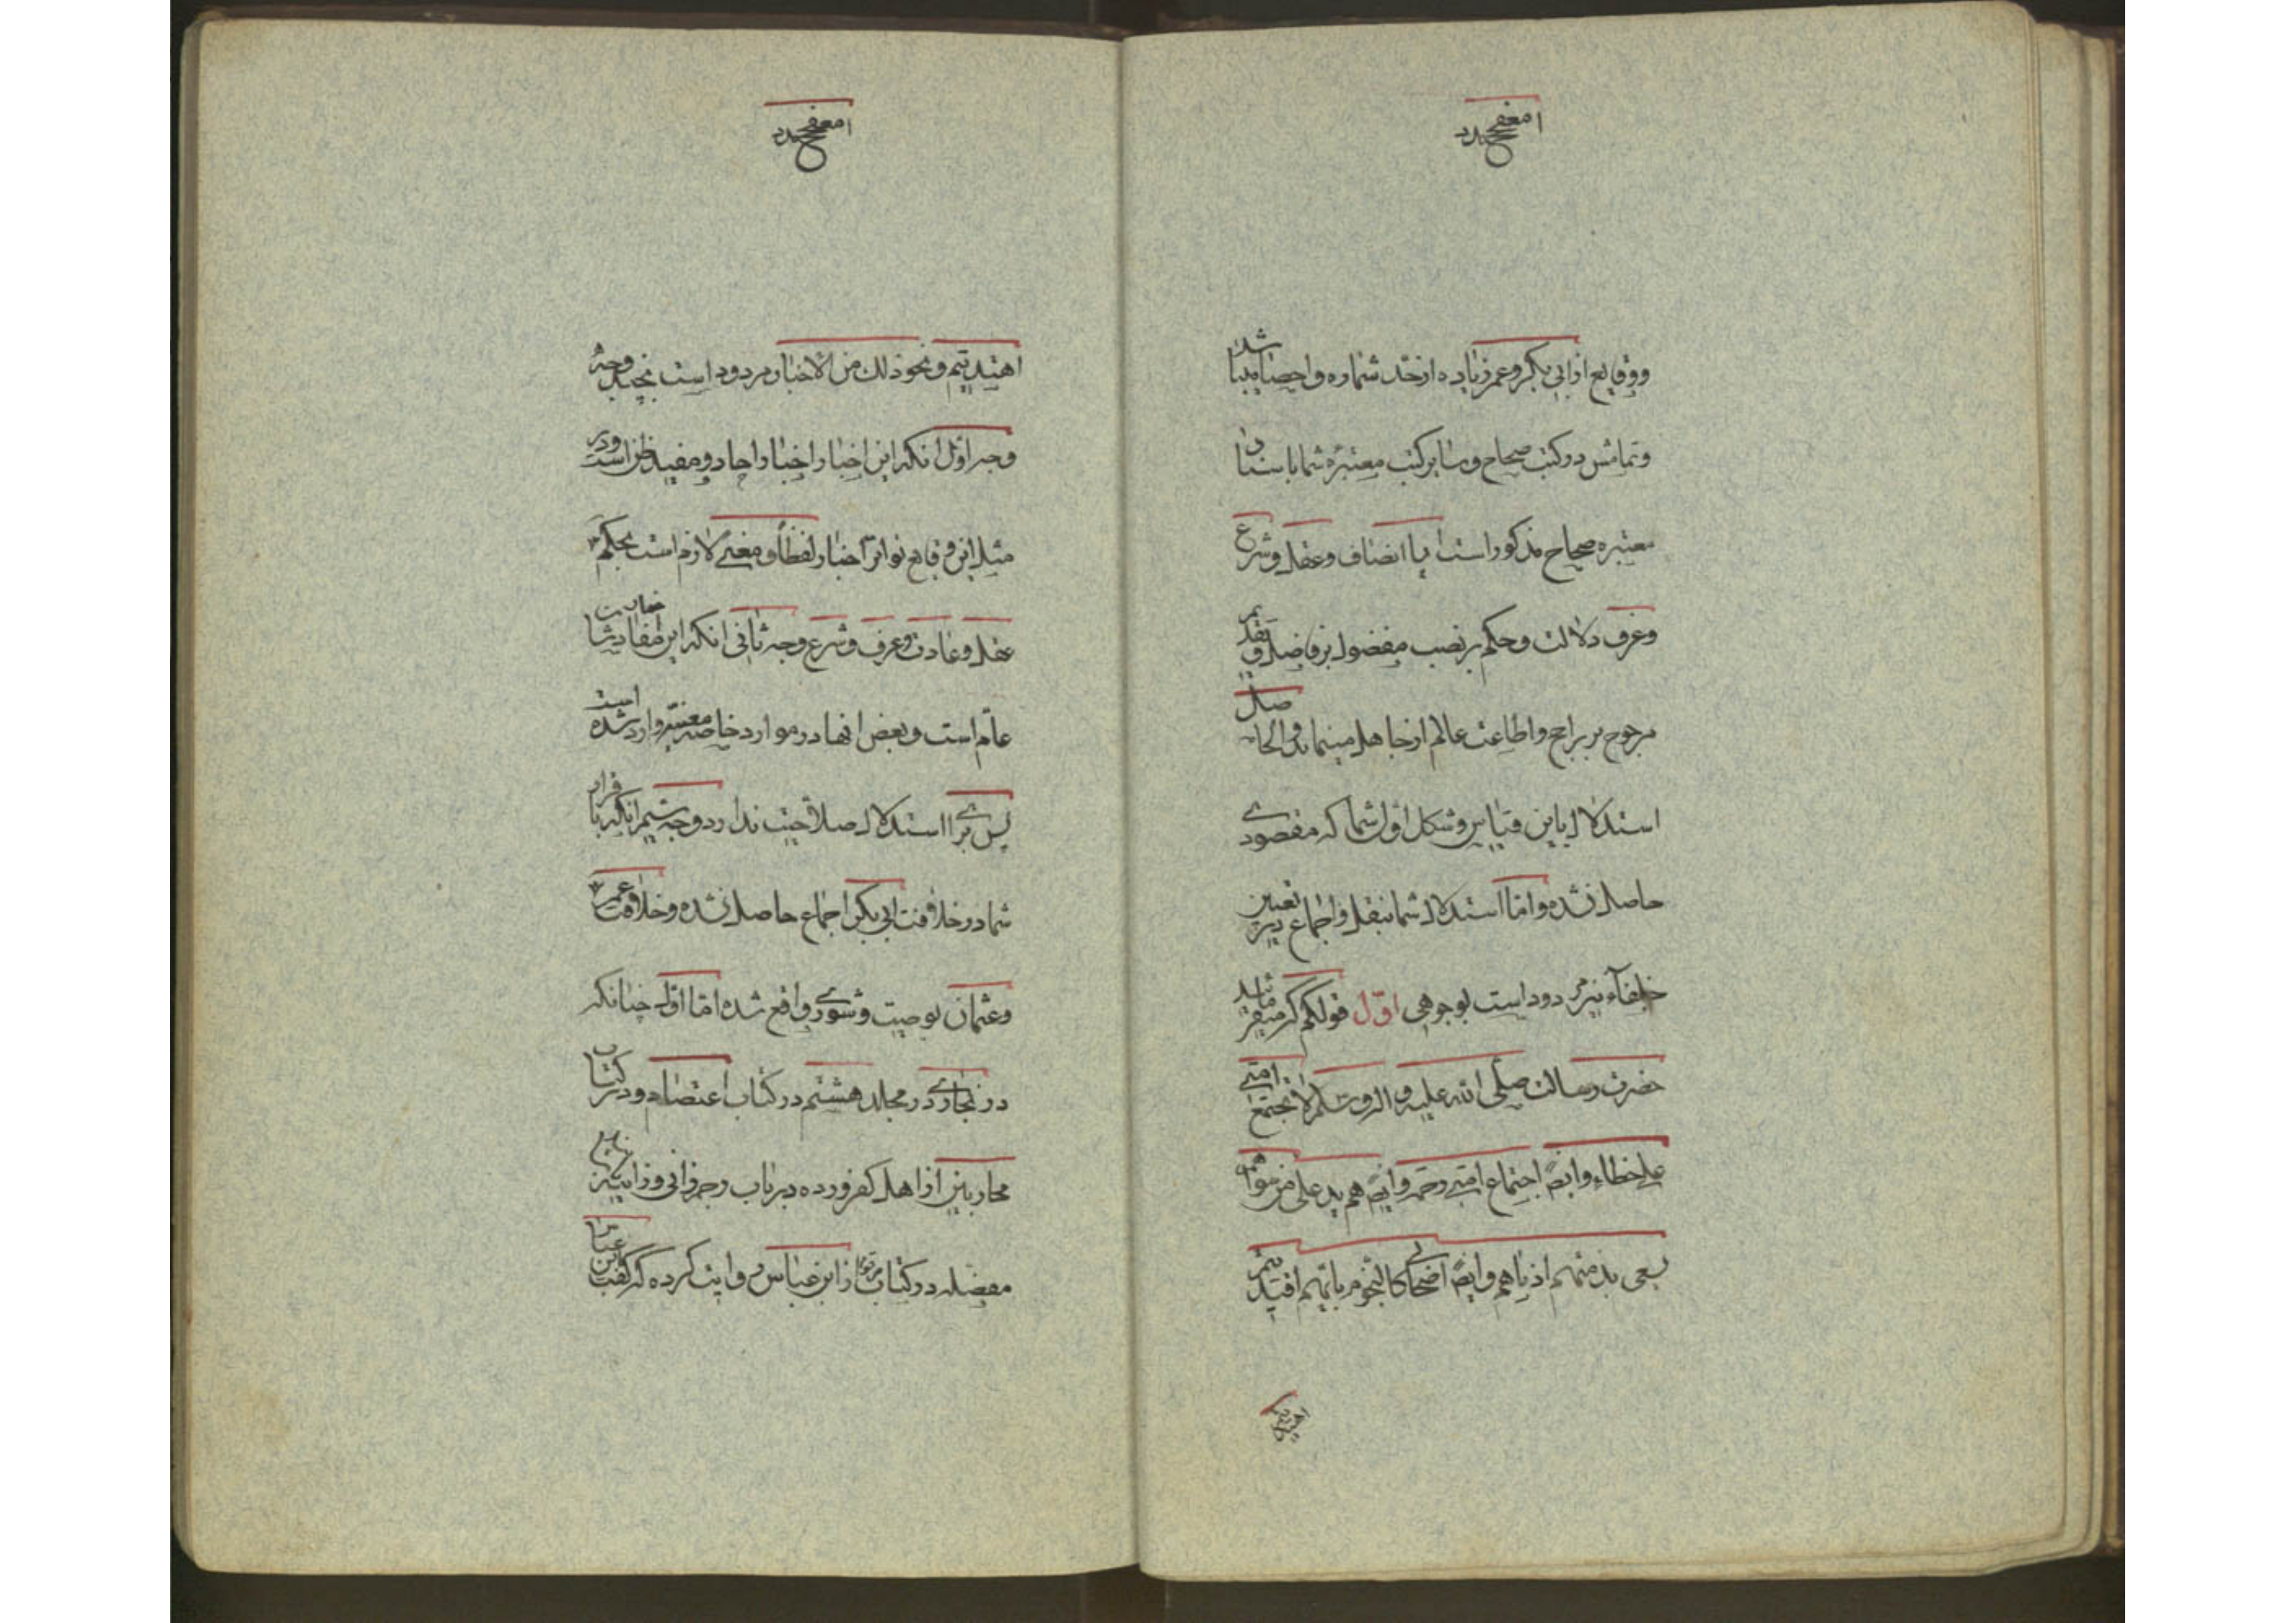 و وقایع از ابی بکر و عمر زیاده از حد شماره و احصا میباشد
و تمامش در کتب صحاح و سایر کتب معتبره شما باسناد
معتبره صحاح مذکور است ایا انصاف و عقل و شرع
و عرف دلالت و حکم بر نصب مفضول بر فاضل و تقدیم
مرجوح بر راجح و اطاعت عالم از جاهل مینماید و الحاصل
استدلال باین قیاس و شکل اول شما که مقصودی
حاصل نشد و اما استدلال شما بنقل و اجماع در تعیین
خلفآء نیز مردود است بوجوهی اوّل قولکم که میفرماید
حضرت رسالت صلّی الله علیه و اله و سلم لا تجتمع امتی
علی خطاء وایضً اجتماع امتی رحمه وایضً هم ید علی من سواهم
یسعی بذمتهم ادناهم وایضً اصحابی کالنجوم بایهم اقتدیتم
اهتدیتم
اهتدیتم و نحو ذلک من الاخبار مردود است بچند وجه
وجه اوّل انکه این اخبار اخبار احاد و مفید ظن است و در
مثل این وقایع تواتر اخبار لفظاً و معنی لازم است بحکم
عقل و عادت و عرف و شرع وجه ثانی انکه این
عآم است و بعض انها در موارد خاصه معینه وارد شده است
پس برای استدلال صلاحیت ندارد وجه سیم انکه باقرار
شما در خلافت ابی بکر اجماع حاصل نشده و خلافت عمر
و عثمان بوصیت و شوری واقع شده اما اوّل چنانکه
در بخاری در مجلد هشتم در کتاب اعتصام و در کتاب
محاربین از اهل کفر و رده در باب رجم زانی و زانیه
مفصله در کتاب از ابن عباس روایت کرده که گفت ابن عباس